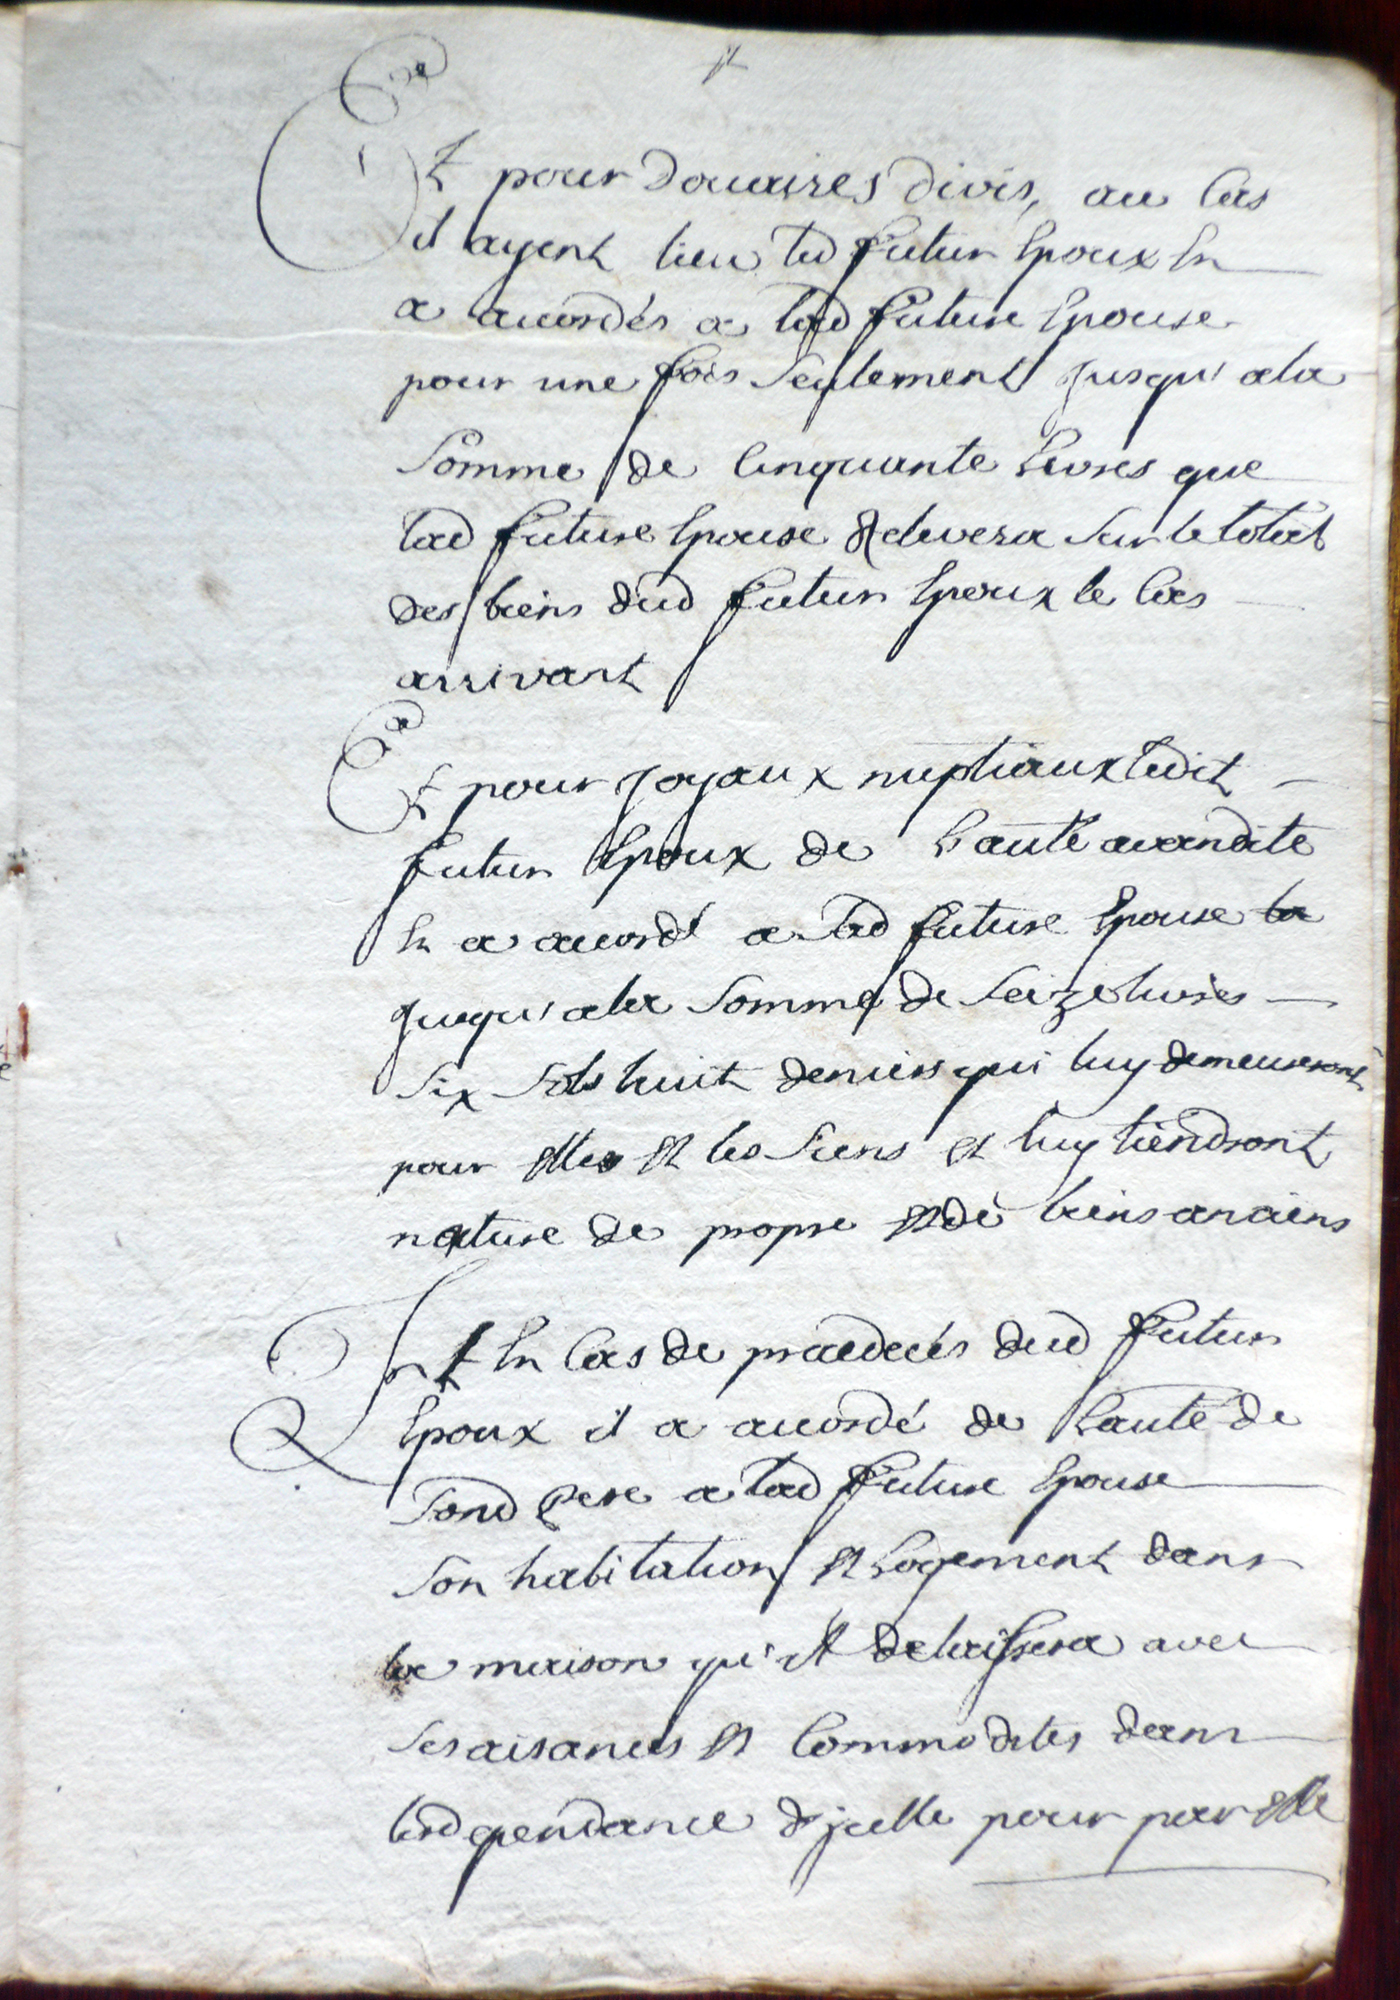 Et pour Douaires divis, au Cas
il ayent lieu led futur Epoux En
a accordés a lad future Epouse
pour une fois seulement jusqu'a la
Somme de Cinquante Livres que
lad future Epouse Relevera sur le total
des biens dud futur Epoux le Cas
arrivant
Et pour joyaux nuptiaux ledit
futur Epoux de Lauté avandite
En a accordé a lad future Epouse la
jusqu'a la Somme de Seize livres
Six Sols huit deniers qui luy demeureront
pour elle et les Siens et luy tiendront
nature de propre et de biens anciens
Et En Cas de praedecés dud futur
Epoux il a accordé de Lauté de
Sond Pere a lad future Epouse
Son habitation et Logement dans
la maison qu'il delaissera avec
Ses aisances et Commodites dans
les dependance d'jcelle pour par elle